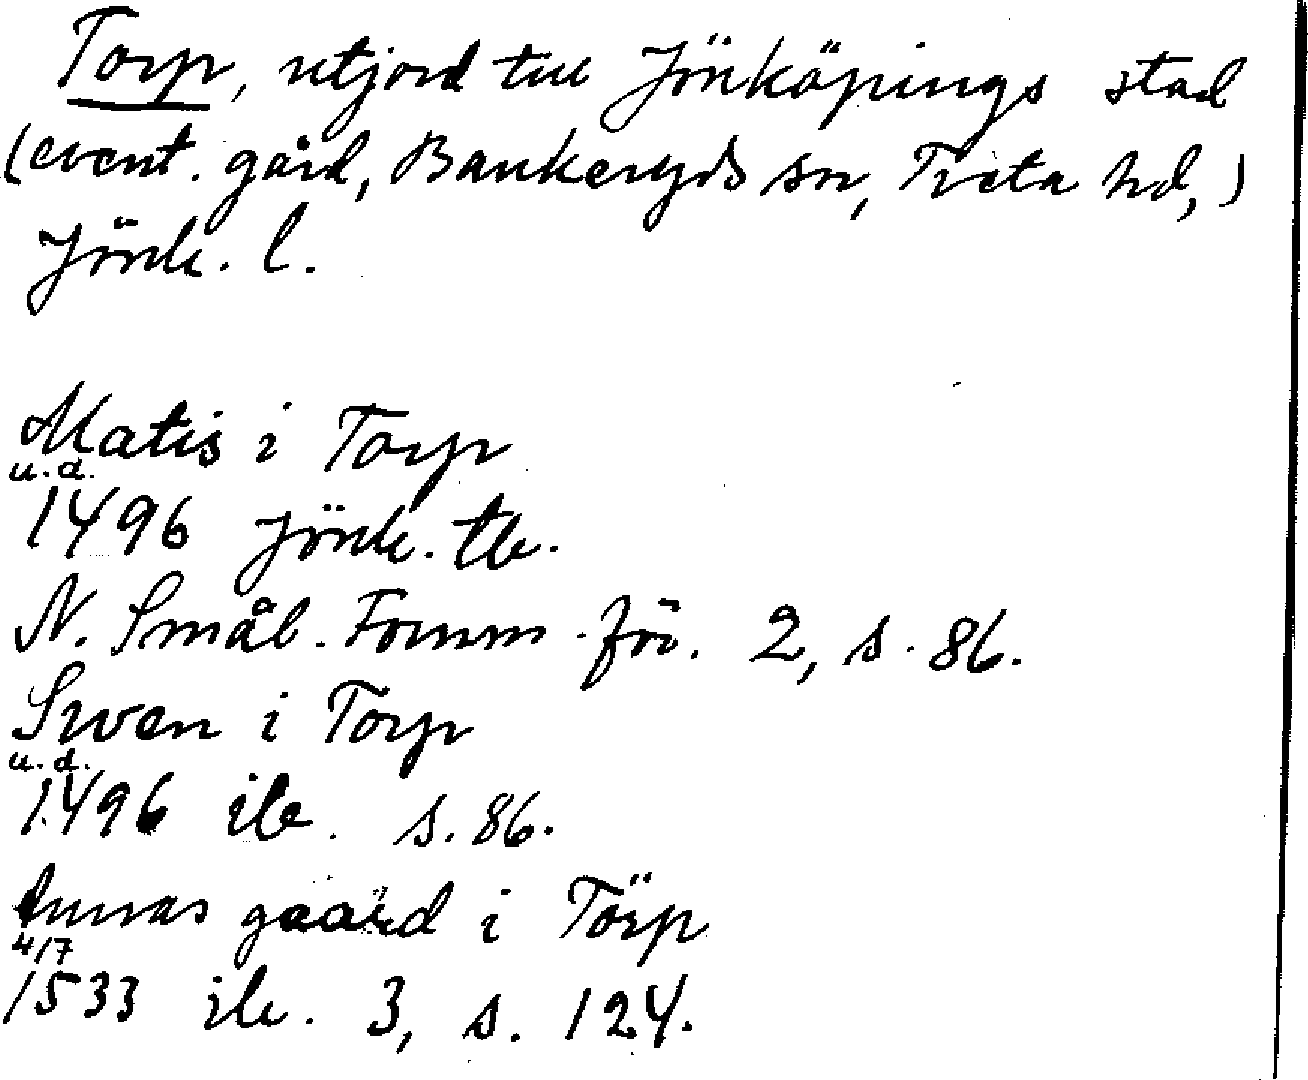 Torp, utjord till Jönköpings stad
(event. gård, Bankeryds sn, Tveta hd,)
Jönk. l.
Matis i Torp
u.d.
1496 Jönk. tb.
N. Smål. Fornm. för. 2, s. 86.
Swen i Torp
u.d.
1496 ib. s. 86.
Annas gaard i Törp
4/7
1533 ib. 3, s. 124.